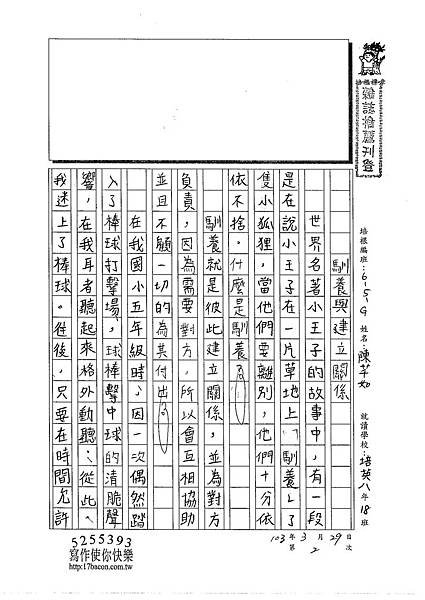 培根語文
作文教室
培根編班:6-5, G 姓名:陳芊如 就讀學校:培英八年18班
103年3月29日
第2次
馴養與建立關係
世界名著小王子的故事中,有一段
是在說小王子在一片草地上「馴養」了
隻小狐狸,當他們要離別,他們十分依
依不捨。什麼是馴養
馴養就是彼此建立關係,並為對方
負責,因為需要對方,所以會互相協助
並且不顧一切的為其付出
在我國小五年級時,因一次偶然踏
入了棒球打擊場,球棒擊中球的清脆聲
響,在我耳者聽起來格外動聽;從此、
我迷上了棒球。往後,只要在時間允許
5255393
寫作使你快樂
http://17bacon.com.tw